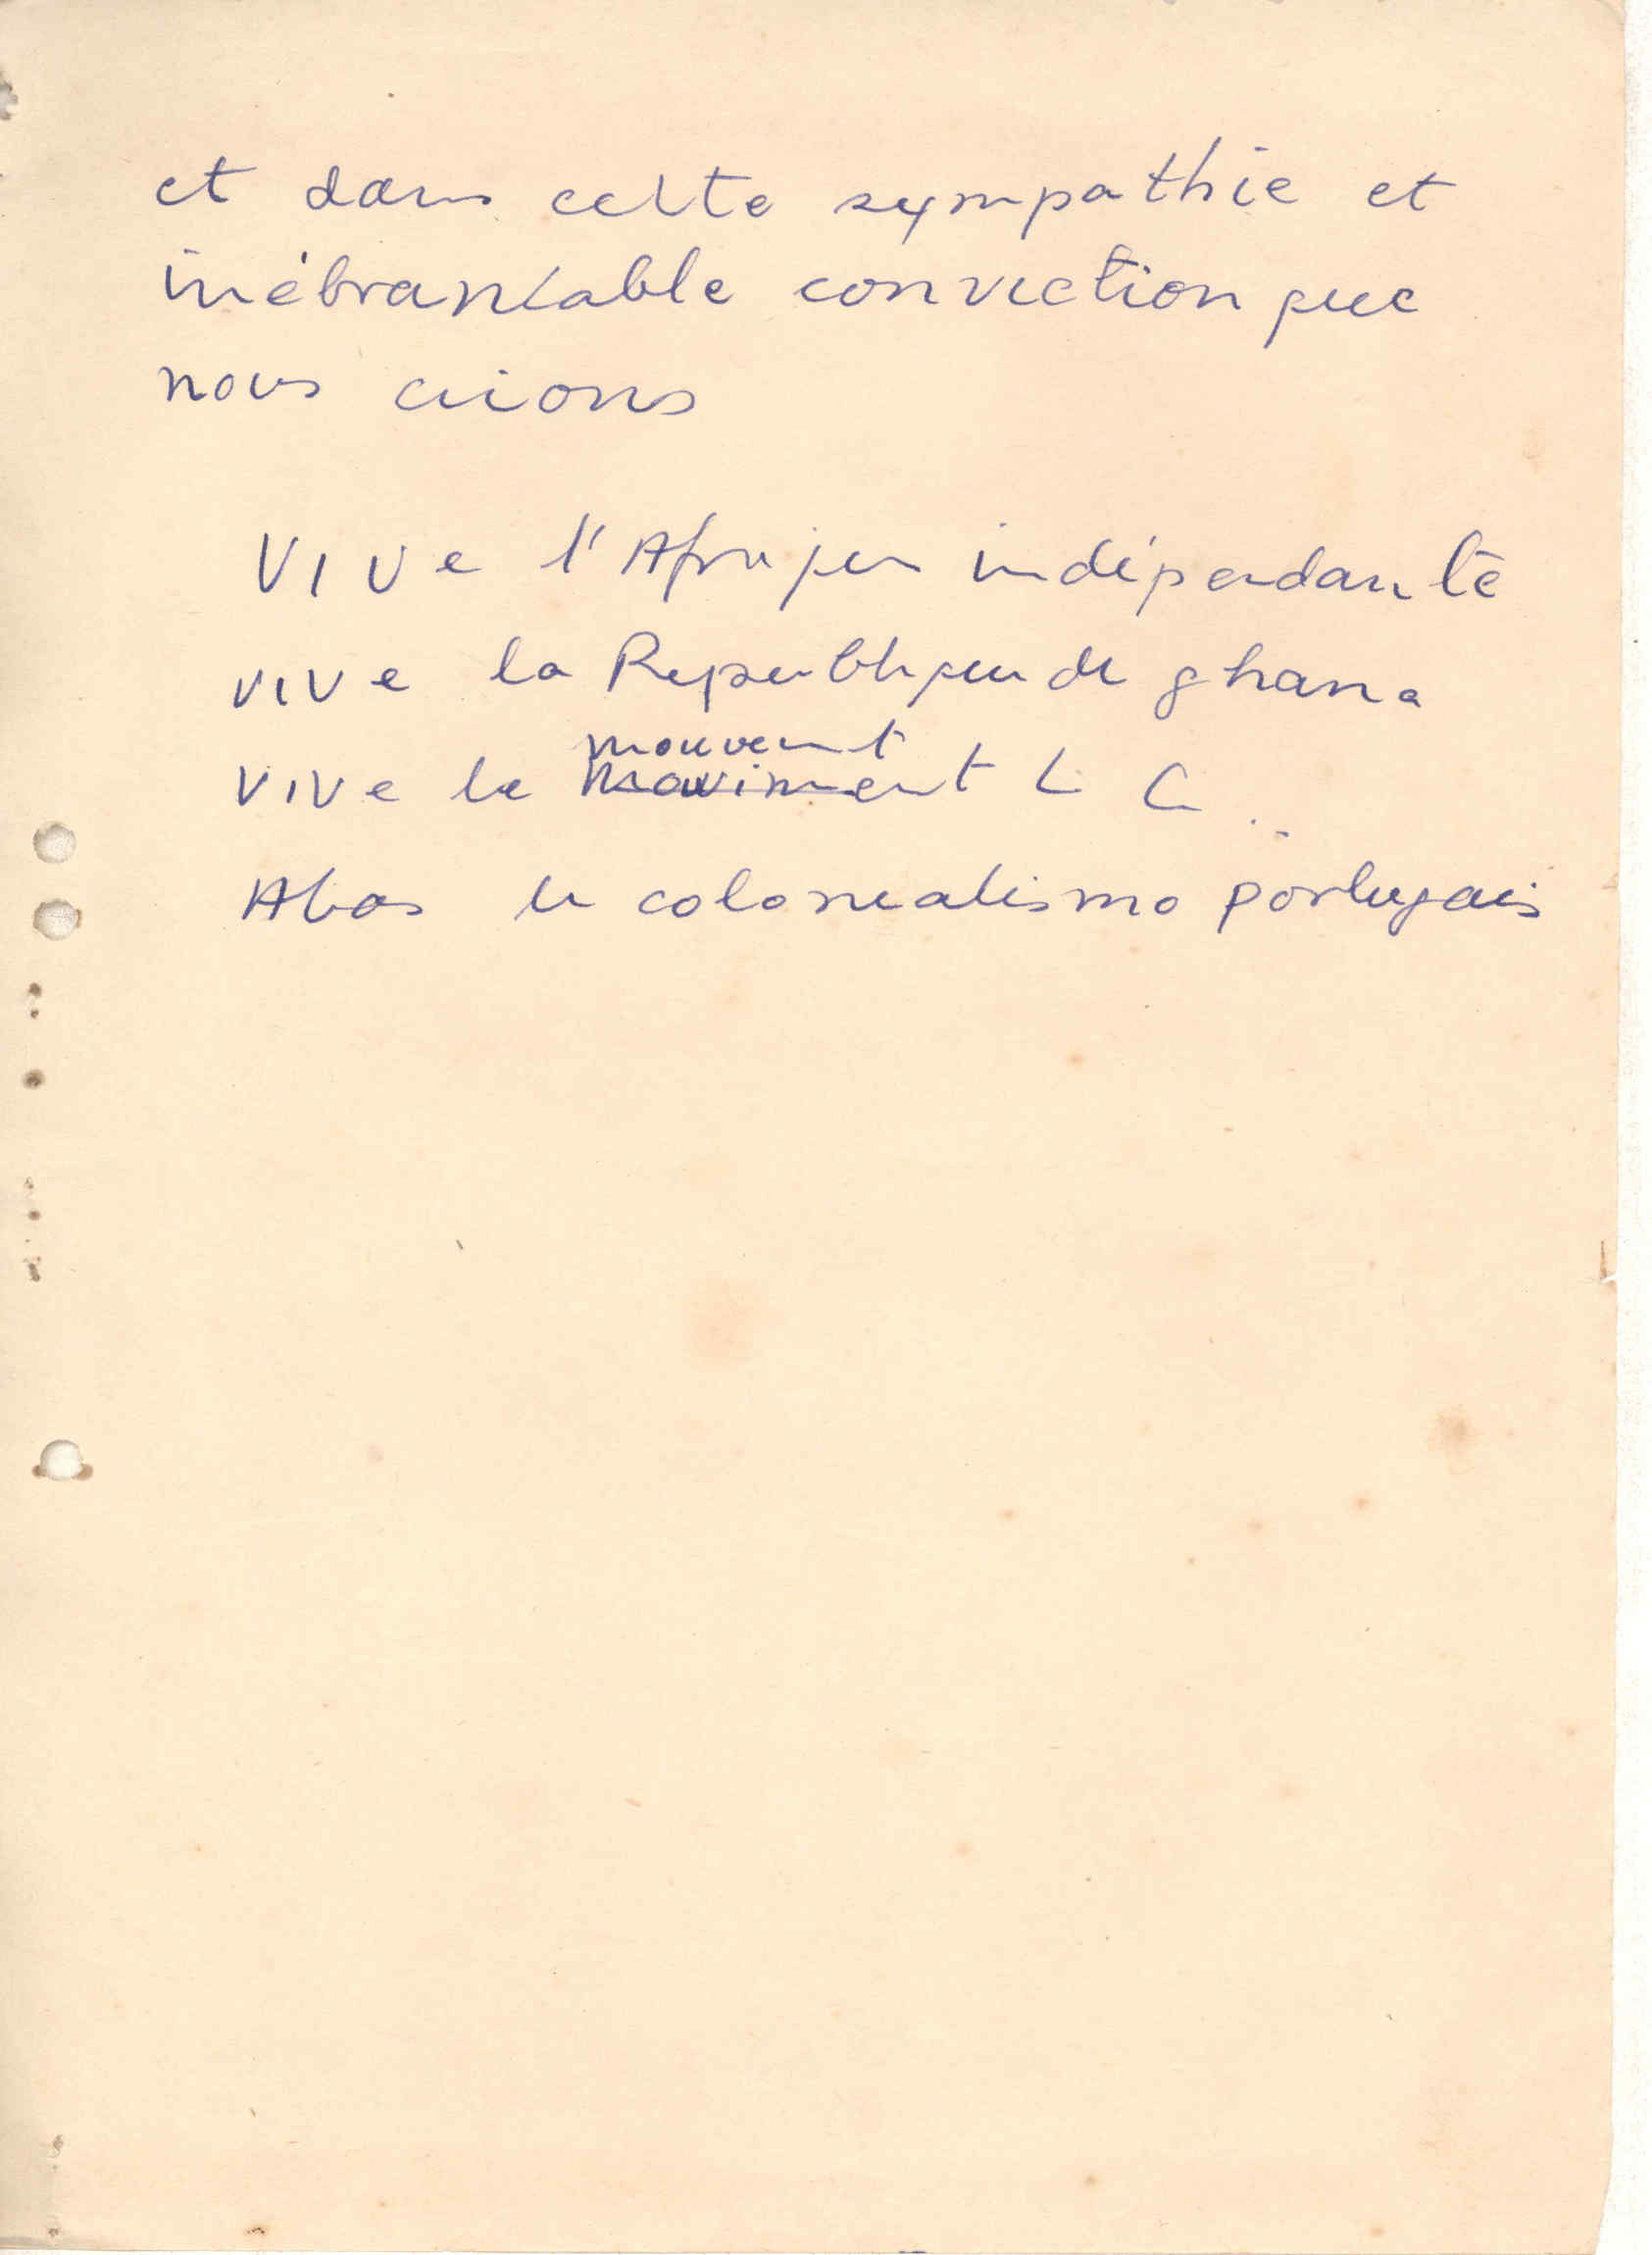 et dans cette sympathie et
inébranlable conviction que
nous crions
Vive l'Afrique indépendante
vive la Republique de ghana
mouvent
vive le moviment L C
Abas le colonialismo portugais